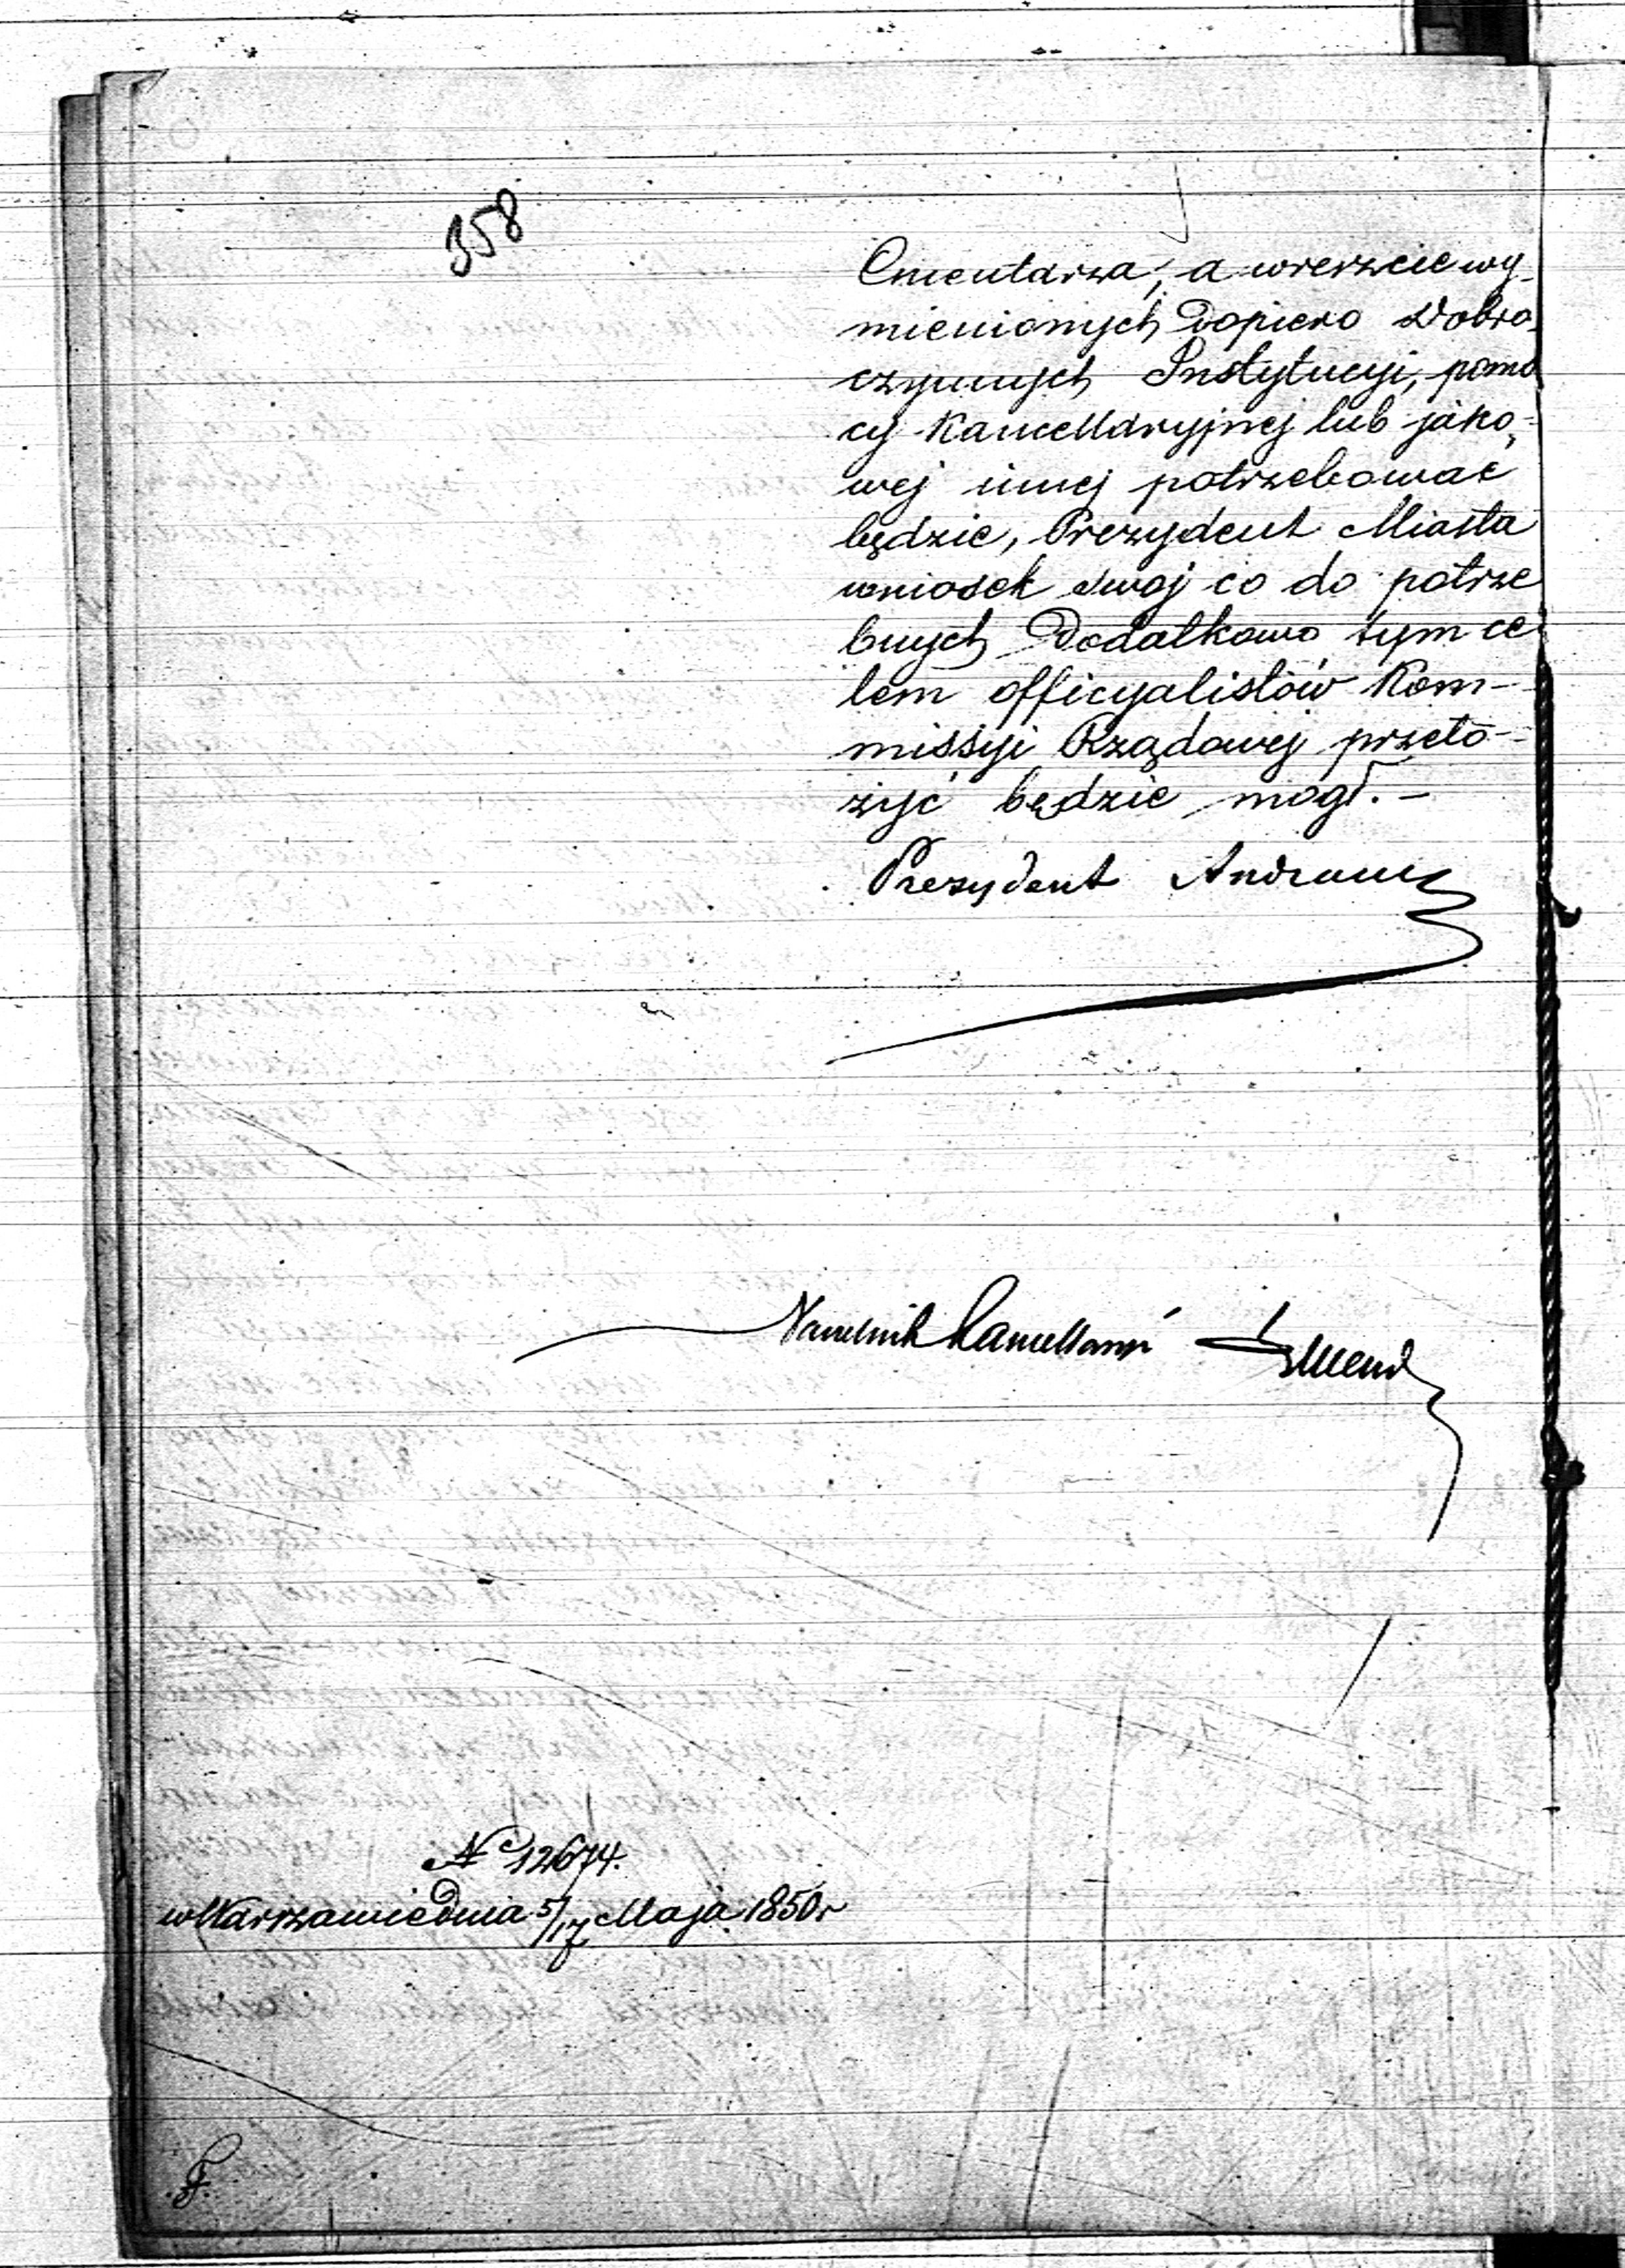 358
Cmentarza, a wreszcie wy-
mienionych dopiero Dobro-
czynnych Instytucyi, pomo
cy Kancellaryjnej lub jako-
wej innej potrzebować
będzie, Prezydent Miasta
wniosek swój co do potrze
bnych dodatkowo tym ce
lem officyalistów Kom-
missyi Rządowej przeło-
żyć będzie mógł. —
Prezydent Andrault
Naczelnik Kancellaryi
No 12674.
w Warszawie dnia 5/17 Maja 1850 r
F.